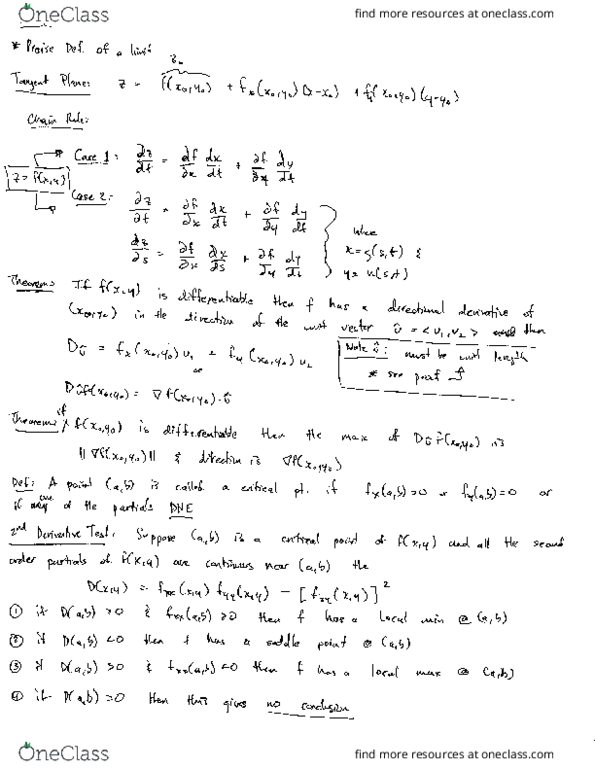 OneClass
find more resources at oneclass.com
* Praise Def. of a limit
Tangent Plane: z = f(x₀,y₀) + fₓ(x₀,y₀)(x-x₀) + f_y(x₀,y₀)(y-y₀)
z₀
Chain Rule:
z = f(x,y)
Case 1: dz/dt = ∂f/∂x dx/dt + ∂f/∂y dy/dt
Case 2: ∂z/∂t = ∂f/∂x dx/dt + ∂f/∂y dy/dt
∂z/∂s = ∂f/∂x dx/ds + ∂f/∂y dy/ds
where
x = g(s,t) &
y = h(s,t)
Theorem: If f(x,y) is differentiable then f has a directional derivative of
(x₀,y₀) in the direction of the unit vector û = <u₁, u₂> then
Dû = fₓ(x₀,y₀) u₁ + f_y(x₀,y₀) u₂
or
Note û: must be unit length
* see proof
Dûf(x₀,y₀) = ∇f(x₀,y₀)·û
Theorem: if f(x₀,y₀) is differentiable then the max of Dûf(x₀,y₀) is
||∇f(x₀,y₀)|| & direction is ∇f(x₀,y₀)
Def: A point (a,b) is called a critical pt. if fₓ(a,b)=0 or f_y(a,b)=0 or
if any one of the partials DNE
2nd Derivative Test: Suppose (a,b) is a critical point of f(x,y) and all the second
order partials of f(x,y) are continuous near (a,b) the
D(x,y) = fₓₓ(x,y) f_yy(x,y) - [f_xy(x,y)]²
① if D(a,b) >0 & fₓₓ(a,b) >0 then f has a local min @ (a,b)
② if D(a,b) <0 then f has a saddle point @ (a,b)
③ if D(a,b) >0 & fₓₓ(a,b) <0 then f has a local max @ (a,b)
④ if D(a,b) =0 then this gives no conclusion
OneClass
find more resources at oneclass.com